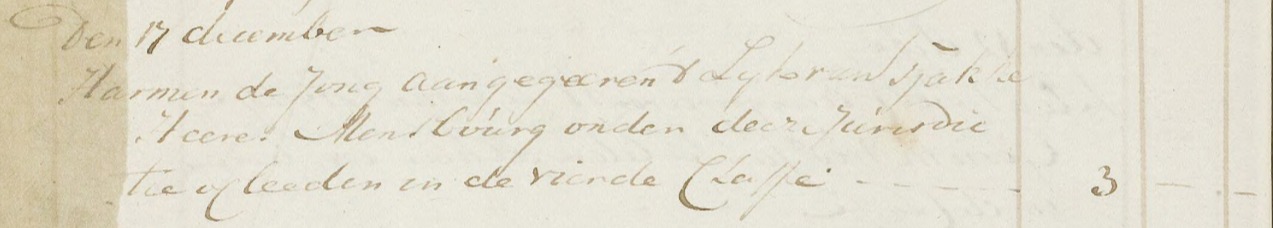 Den 17 december
Harmen de Jong aangegeeven t Lyk van Sjakke
Heeres Mensbourg onder deez Jurisdic
tie overleeden in de vierde Classe - - - - - 3 - - -